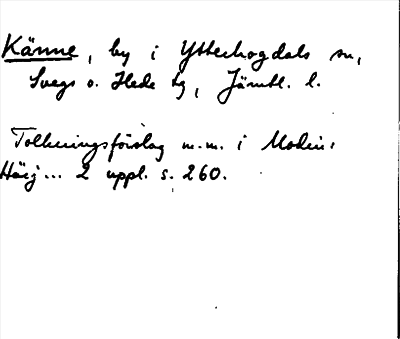 Känne, by i Ytterhogdals sn,
Svegs o. Hede tg, Jämtl. l.
Tolkningsförslag m.m. i Modin:
Härj... 2 uppl. s. 260.